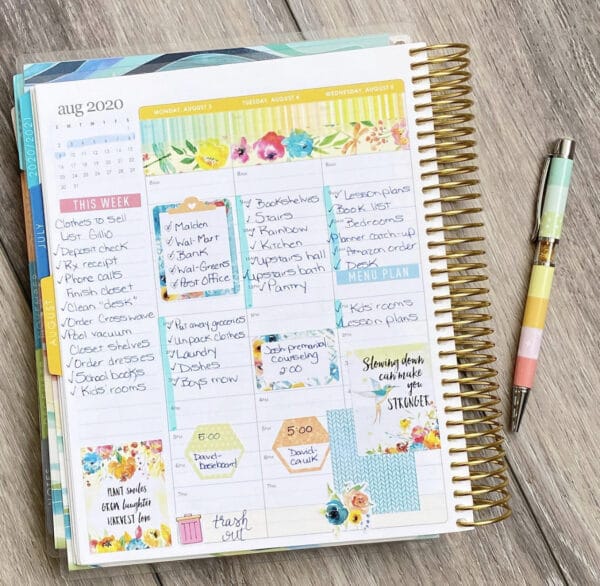 aug 2020
S M T W T F S
2020/2021
JULY
AUGUST
THIS WEEK
Clothes to Sell
List Gillio
✓Deposit check
✓Rx receipt
✓Phone calls
Finish closet
✓Clean "desk"
✓Order Crosswave
✓Pool vacuum
Closet shelves
✓Order dresses
✓School books
✓Kids rooms
PLANT smiles
GROW laughter
HARVEST love
MONDAY, AUGUST 3
8AM
✓Malden
✓Wal-Mart
✓Bank
✓Wal-Greens
✓Post Office
✓Put away groceries
✓Unpack clothes
✓Laundry
✓Dishes
✓Boys mow
5PM
5:00
David-
baseboard
6PM
7PM
trash
out
TUESDAY, AUGUST 4
8AM
✓Bookshelves
✓Stairs
✓Rainbow
✓Kitchen
✓Upstairs hall
✓Upstairs bath
✓Pantry
Josh-premarital
counseling
2:00
5PM
5:00
David-
caulk
WEDNESDAY, AUGUST 5
8AM
✓Lesson plans
✓Book list
✓Bedrooms
Planner catch-up
✓Amazon order
✓Desk
MENU PLAN
✓Kids rooms
✓Lesson plans
Slowing down
can make
you
STRONGER.